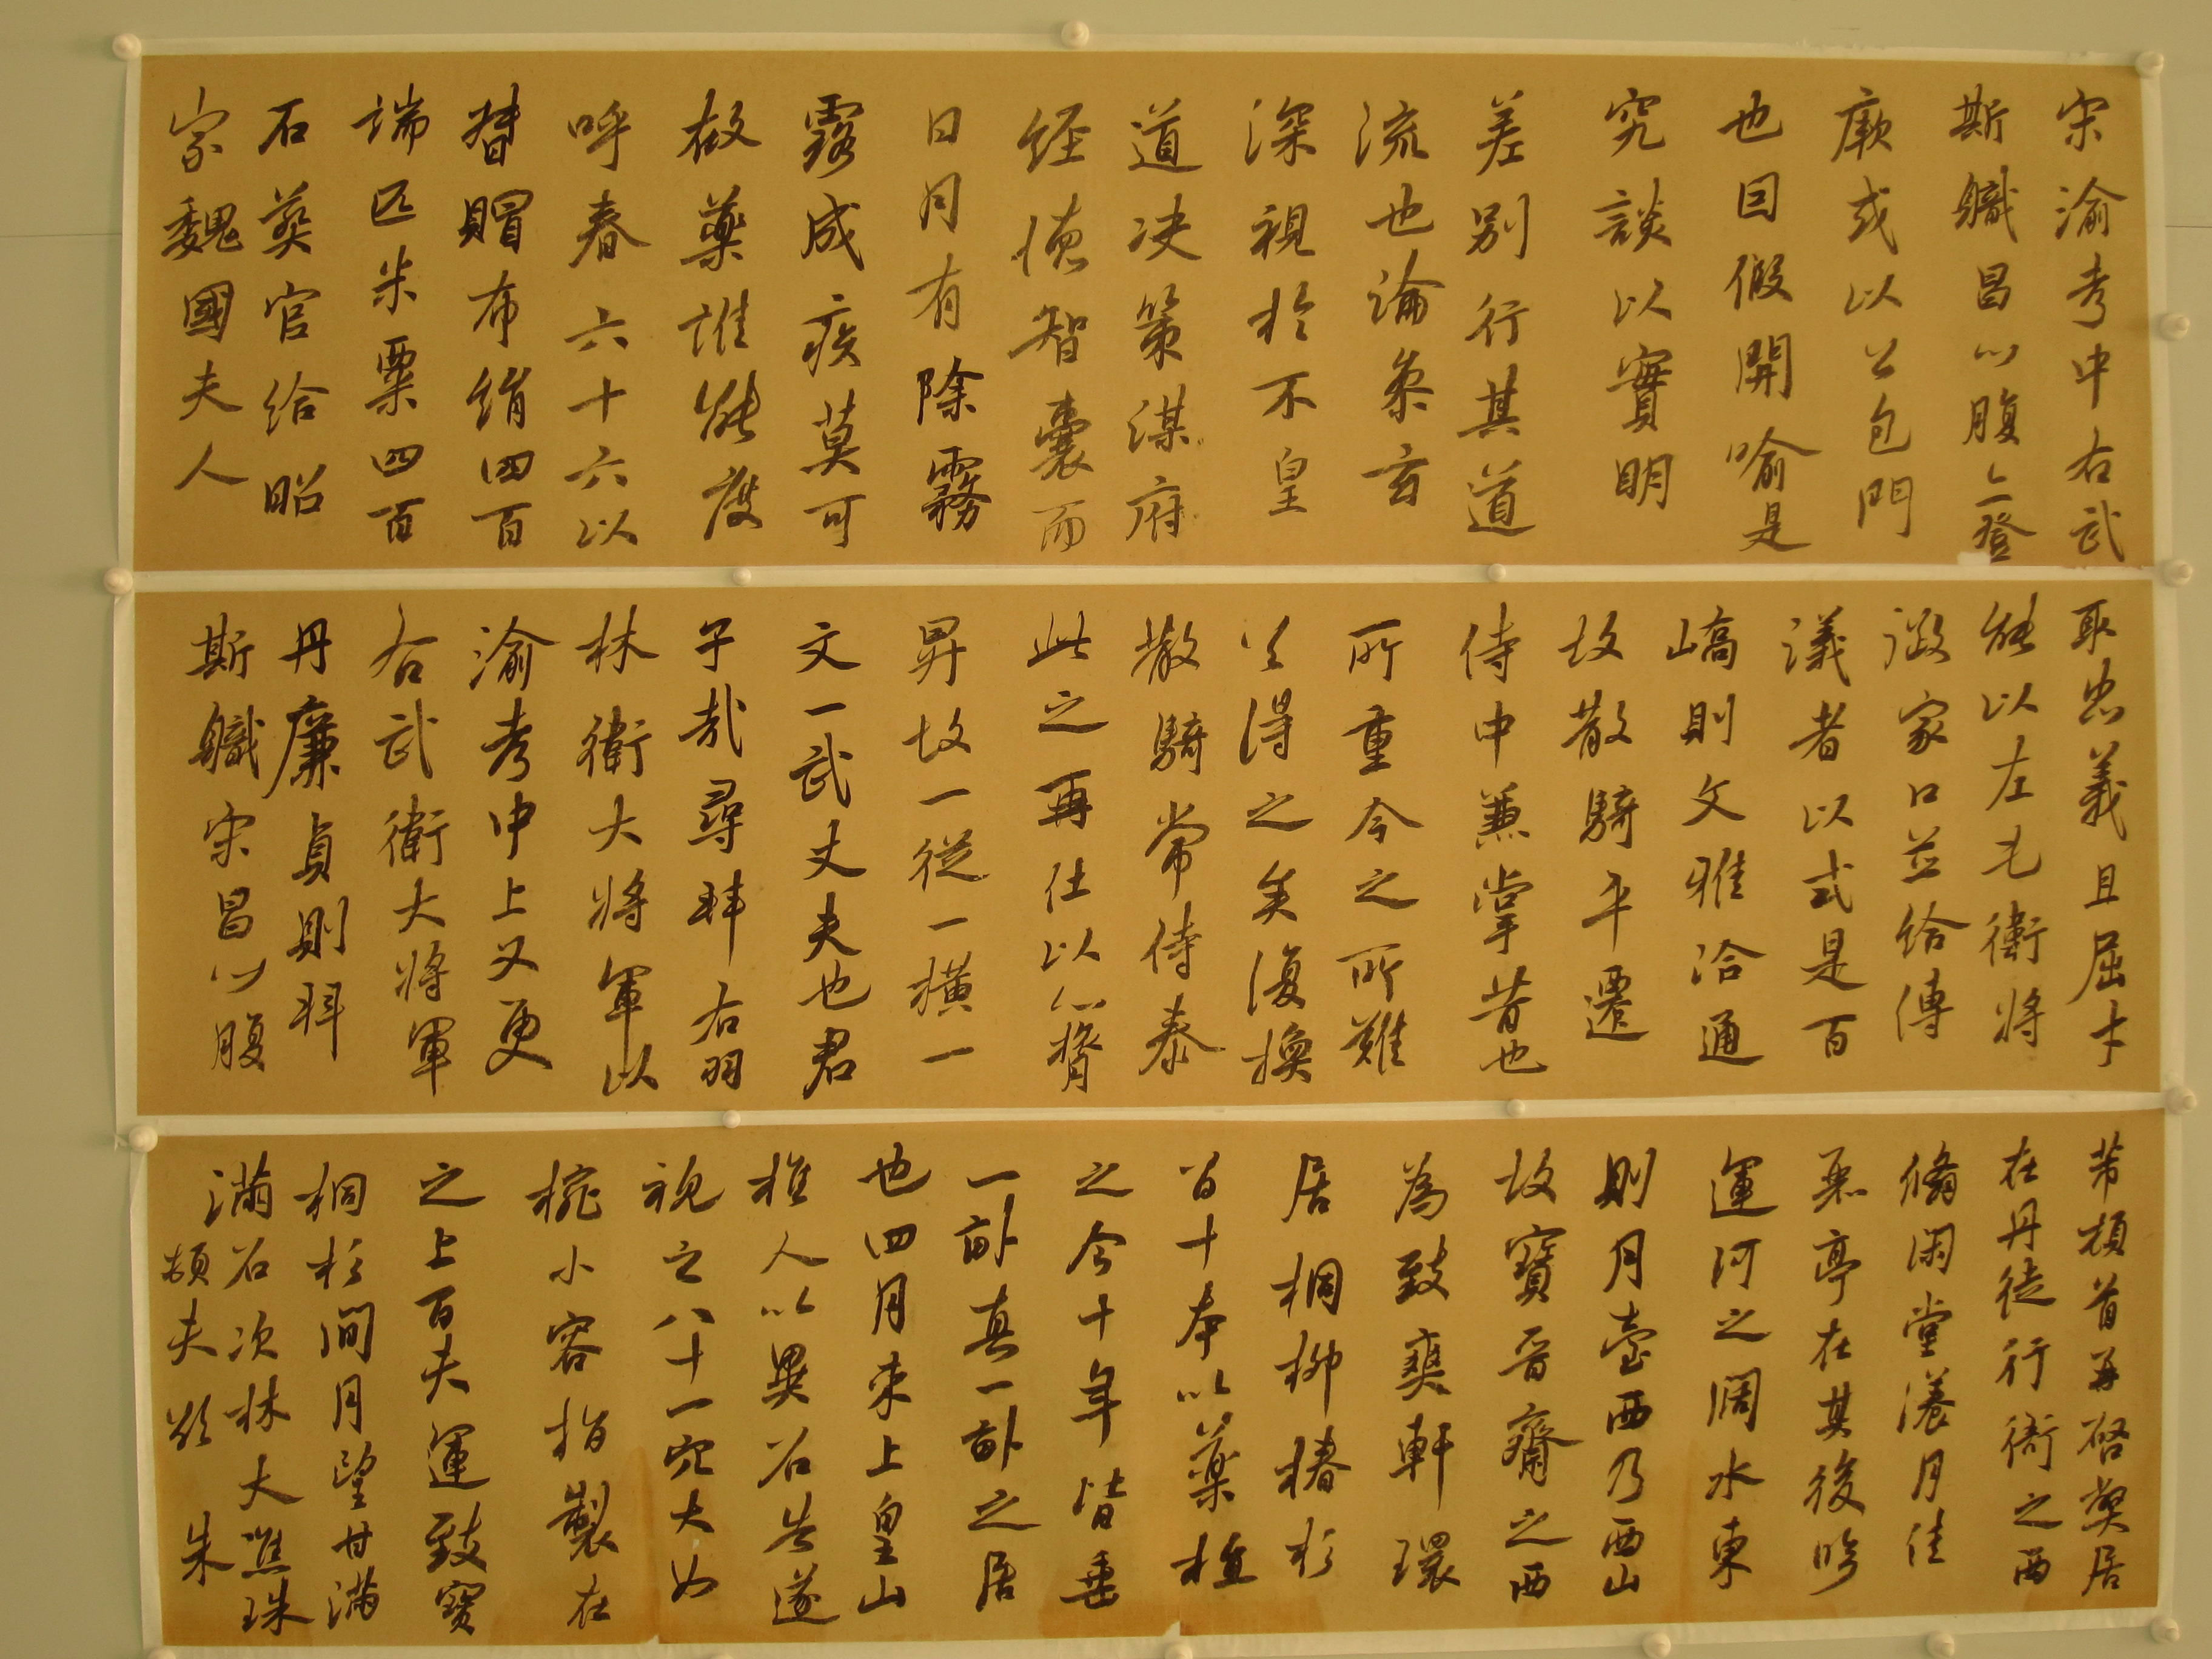 宋渝考中右武
斯軄昌以腹心登
厥或以公包門
也因假開喻是
究談以實明
差别行其道
流也論条玄
深視於不皇
道决策謀府
经德智囊而
日月有除霧
露成疾莫可
救藥誰能度
呼春六十六以
賵布绢四百
端匹米粟四百
石葵官给昭
家魏國夫人
取忠義且屈才
能以左毛衛将
激家口並给傳
議者以式是百
嶠則文雅洽通
故散騎平遷
侍中兼掌昔也
所重今之所難
公得之矣復换
散騎常侍泰
此之再仕以心膂
昇故一從一横一
文一武丈夫也君
子哉尋拜右羽
林衛大将軍以
渝考中上又更
右武衛大将軍
丹廉貞則拜
斯軄宋昌以腹
芾頓首再啓獘居
在丹徒行衙之西
翛閑堂漾月佳
丽亭在其後临
運河之阔水東
則月臺西乃西山
故寳晉齋之西
為致爽軒環
居桐柳椿杉
百十本以藥植
之今十年皆垂
一畝真一畝之居
也四月末上皇山
樵人以異石告遂
視之八十一穴大如
椀小容指製在
之上百夫運致寳
桐杉間月望甘满
满石次林大進珠
頓夫欲朱